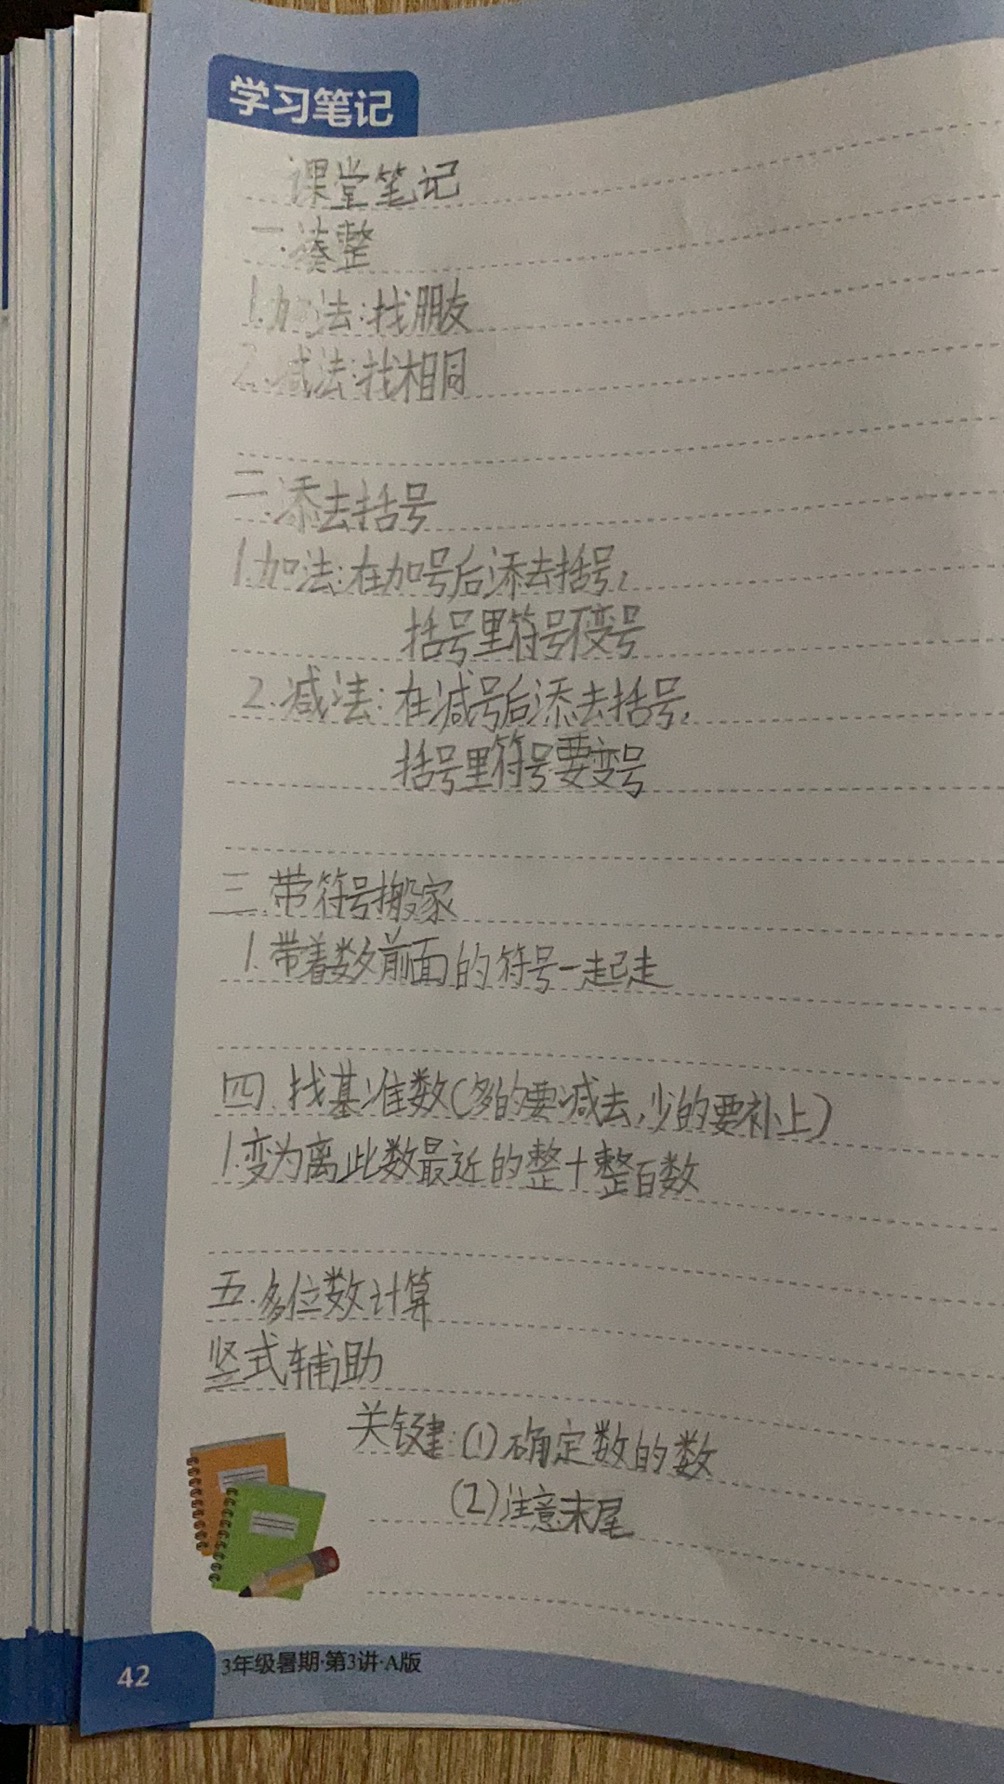 学习笔记
课堂笔记
一.凑整
1.加法:找朋友
2.减法:找相同
二.添去括号
1.加法:在加号后添去括号,
括号里符号不变号
2.减法:在减号后添去括号,
括号里符号要变号
三.带符号搬家
1.带着数前面的符号一起走
四.找基准数(多的要减去,少的要补上)
1.变为离此数最近的整十整百数
五.多位数计算
竖式辅助
关键:(1)确定数的数
(2)注意末尾
42
3年级暑期·第3讲·A版